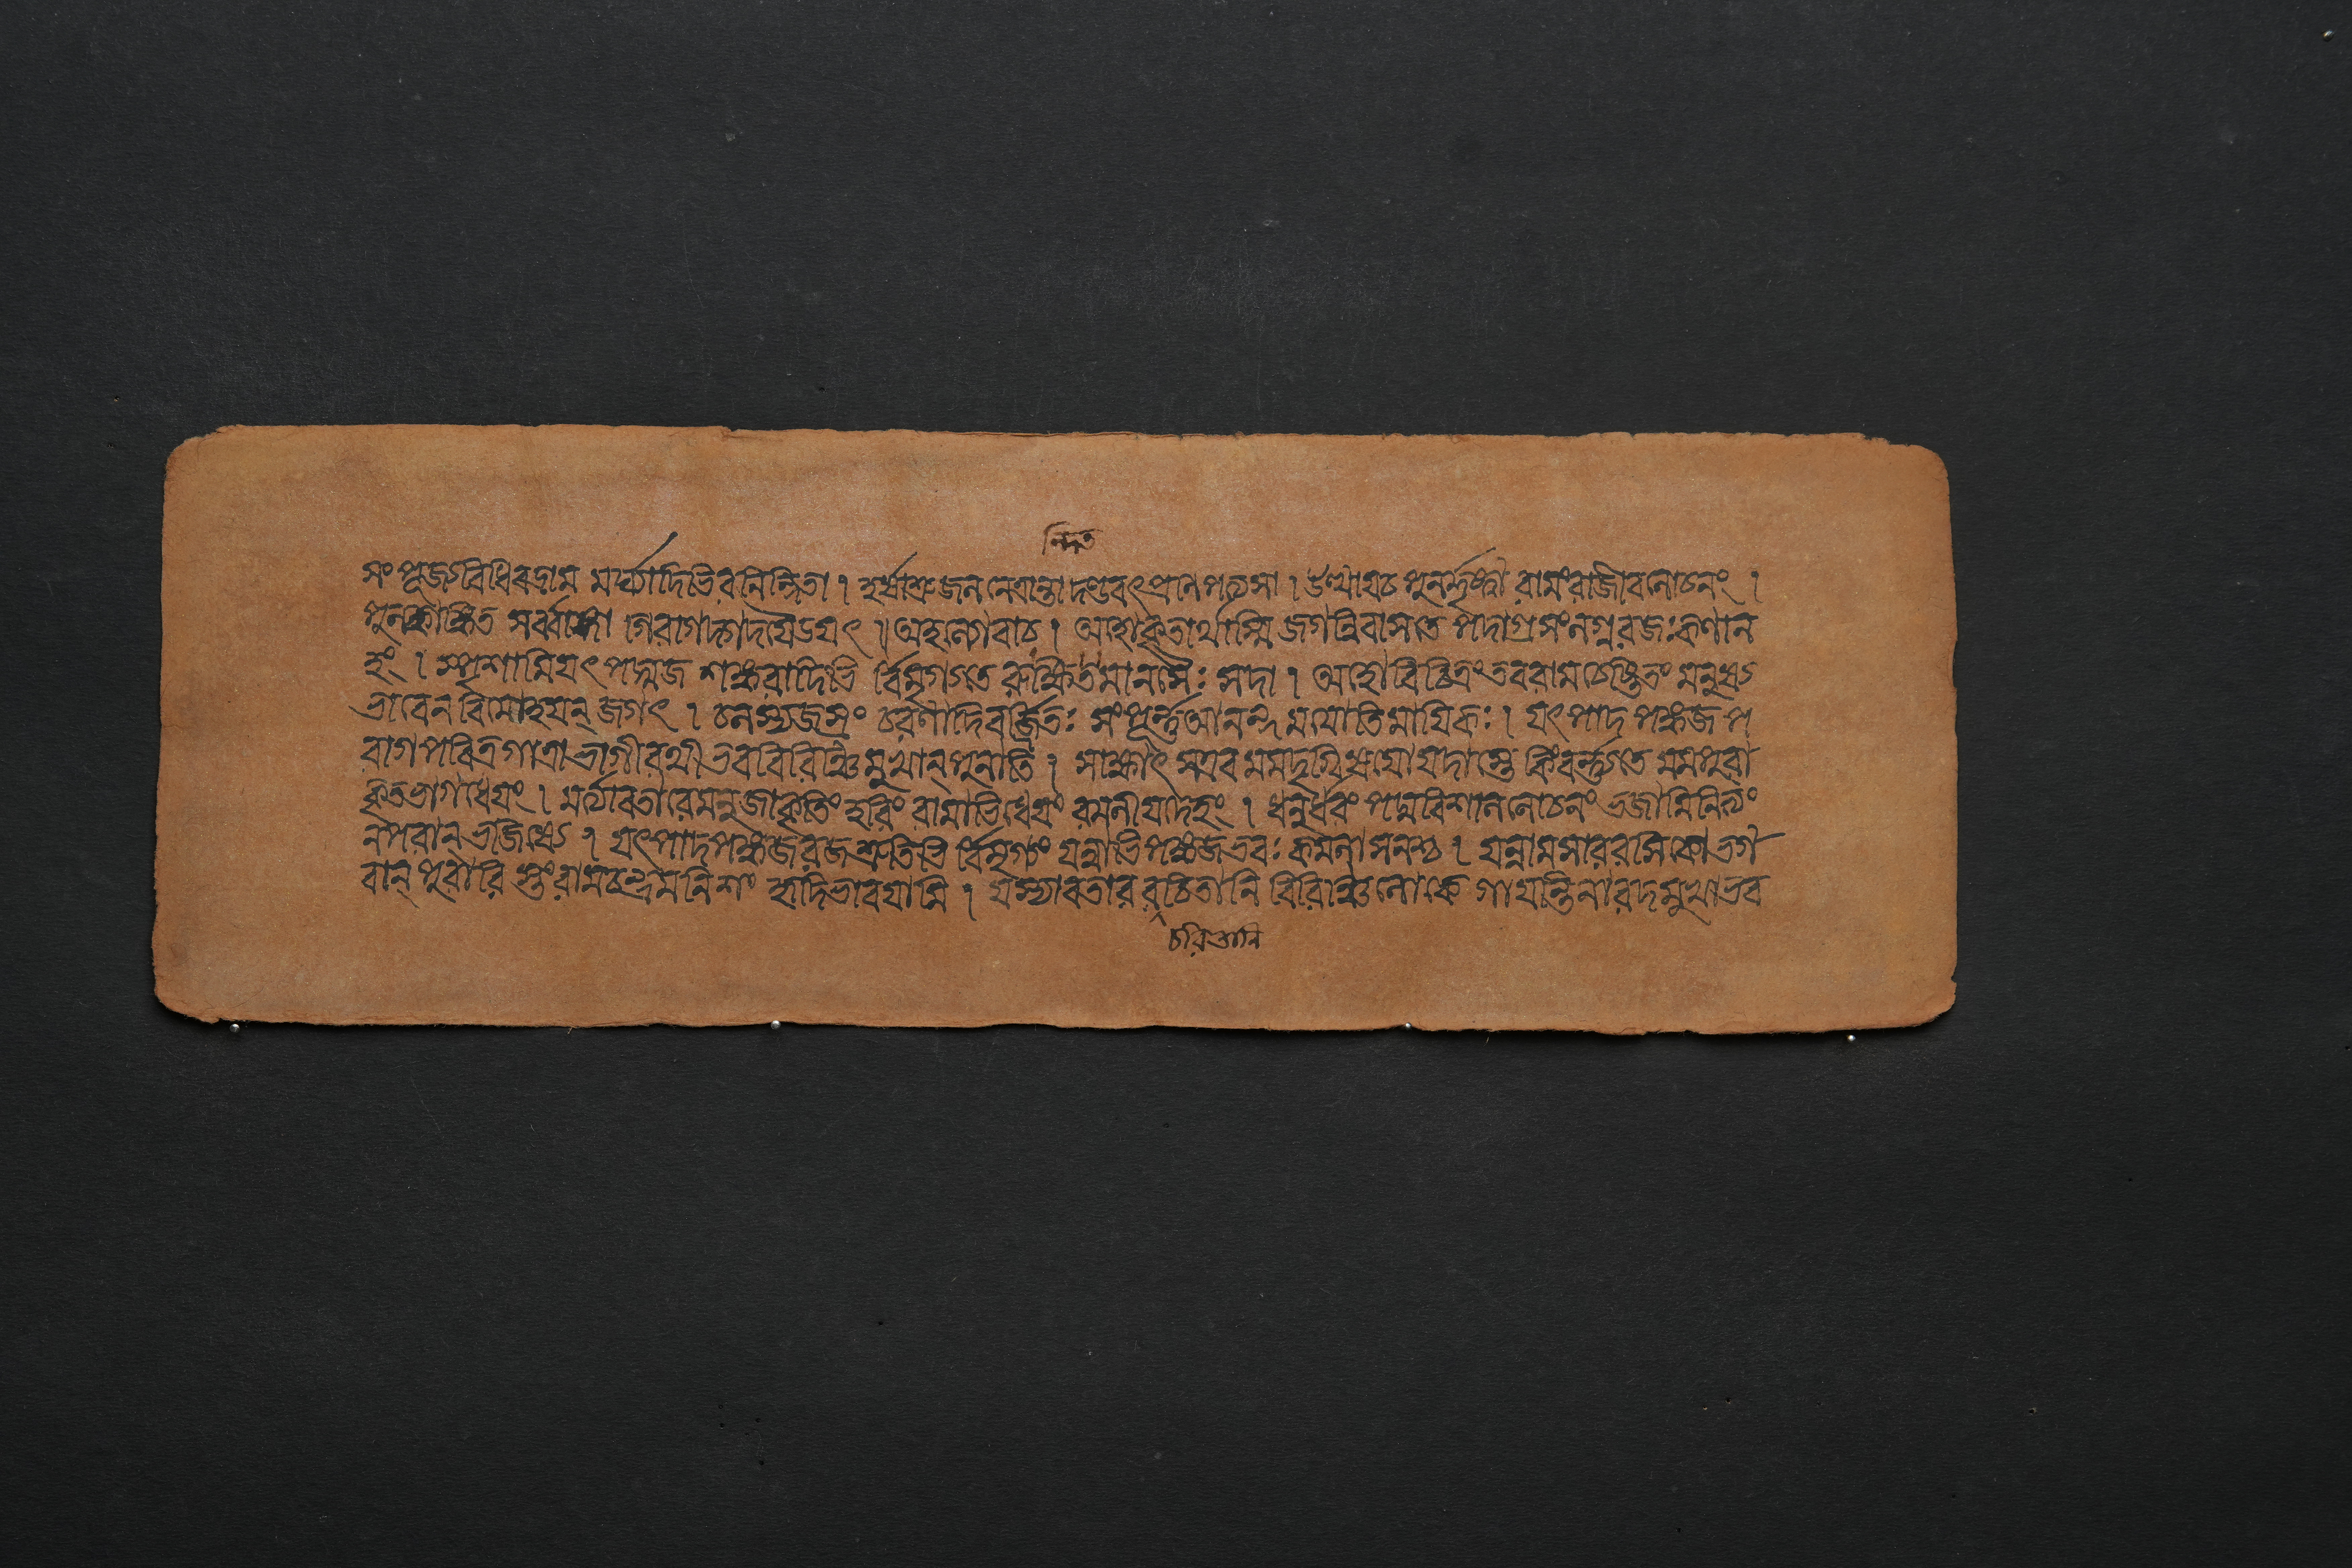 ন্দিত
সংপূজ্যবিধিবদ্রাম মর্ঘ্যাদিভিরনিন্দিতা । হর্ষাশ্রুজলনেত্রান্তা দণ্ডবৎপ্রণিপত্যসা । উত্থায়চ পুনর্দৃষ্ট্বা রামংরাজীবলোচনং ।
পুলকাঙ্কিত সর্ব্বাঙ্গা গিরাগদ্গদয়েঽয়ৎ ॥ অহল্যোবাচ । অহো কৃতার্থাস্মি জগন্নিবাসতে পদাগ্রসংলগ্নরজঃকণান
হং । স্পৃশামিযৎ পদ্মজ শঙ্করাদিভি র্বিমৃগ্যতে রুন্ধিতমানসৈঃ সদা । অহো বিচিত্রং তবরাম চেষ্টিতং মনুষ্য
ভাবেন বিমোহয়ন্ জগৎ । চলস্যজস্রং চরণাদিবর্জ্জিতঃ সংপূর্ন্নআনন্দময়োতিমায়িকঃ । যৎপাদ পঙ্কজ প
রাগ পবিত্রগাত্রা ভাগীরথী ভববিরিঞ্চিমুখান্ পুনাতি । সাক্ষাৎ সএব মমদৃগ্বিষয়ো যদাস্তে কিংবর্ন্ন্যতে মমপুরা
কৃতভাগধেয়ং । মর্ত্যাবতারেমনুজাকৃতিং হরিং রামাভিধেয়ং রমনীয়দেহং । ধনুর্ধরং পদ্মবিশাললোচনং ভজামিনিত্যং
নপরান্ ভজিষ্যে । যৎপাদপঙ্কজরজশ্রুতিভি র্বিমৃগ্যং যন্নাভিপঙ্কজভবঃ কমলাসনশ্চ । যন্নামসাররসিকো ভগ
বান্ পুরারি স্তংরামচন্দ্রমনিশং হৃদিভাবয়ামি । যস্যাবতার রচিতানি বিরিঞ্চিলোকে গায়ন্তিনারদমুখাভব
চরিতানি